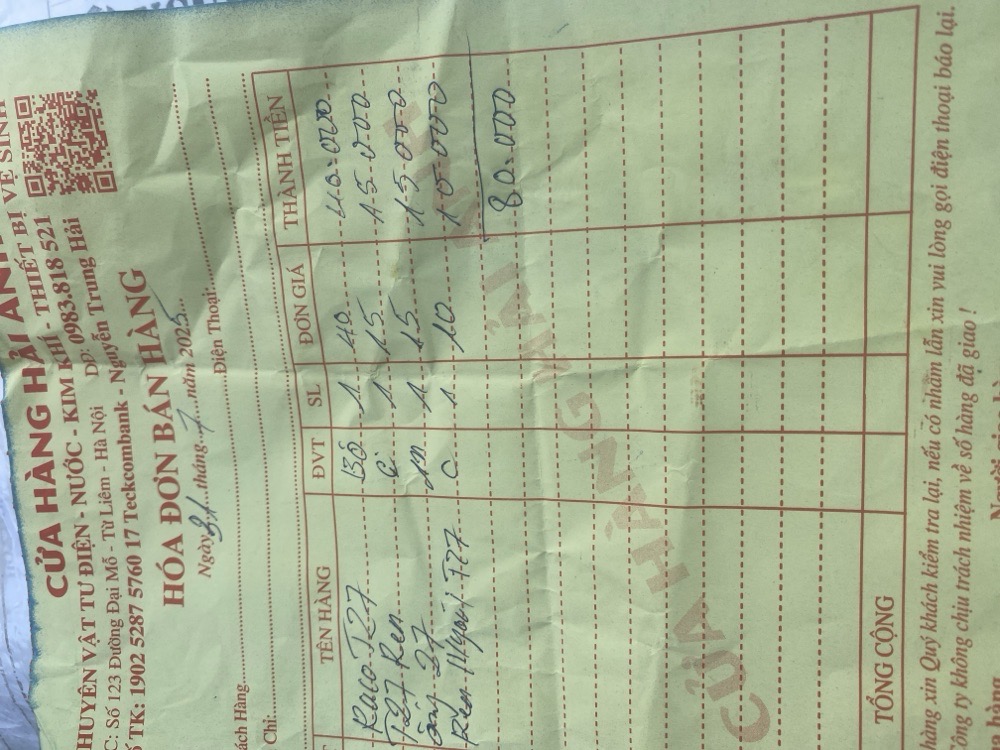 CỬA HÀNG HẢI
HUYÊN VẬT TƯ ĐIỆN - NƯỚC - KIM KHÍ - THIẾT BỊ VỆ SINH
C: Số 123 Đường Đại Mỗ - Từ Liêm - Hà Nội DĐ: 0983.818 521
TK: 1902 5287 5760 17 Teckcombank - Nguyễn Trung Hải
HÓA ĐƠN BÁN HÀNG
Ngày 31 tháng 7 năm 2025
ách Hàng Điện Thoại
Chỉ:
TÊN HÀNG ĐVT SL ĐƠN GIÁ THÀNH TIỀN
Raco T27 Bộ 1 40 40.000
T27 Ren C 1 15 15.000
ống 27 m 1 15 15.000
Ren Ngoài T27 C 1 10 10.000
80.000
CỬA HÀNG HẢI
TỔNG CỘNG
hàng xin Quý khách kiểm tra lại, nếu có nhầm lẫn xin vui lòng gọi điện thoại báo lại.
ông ty không chịu trách nhiệm về số hàng đã giao !